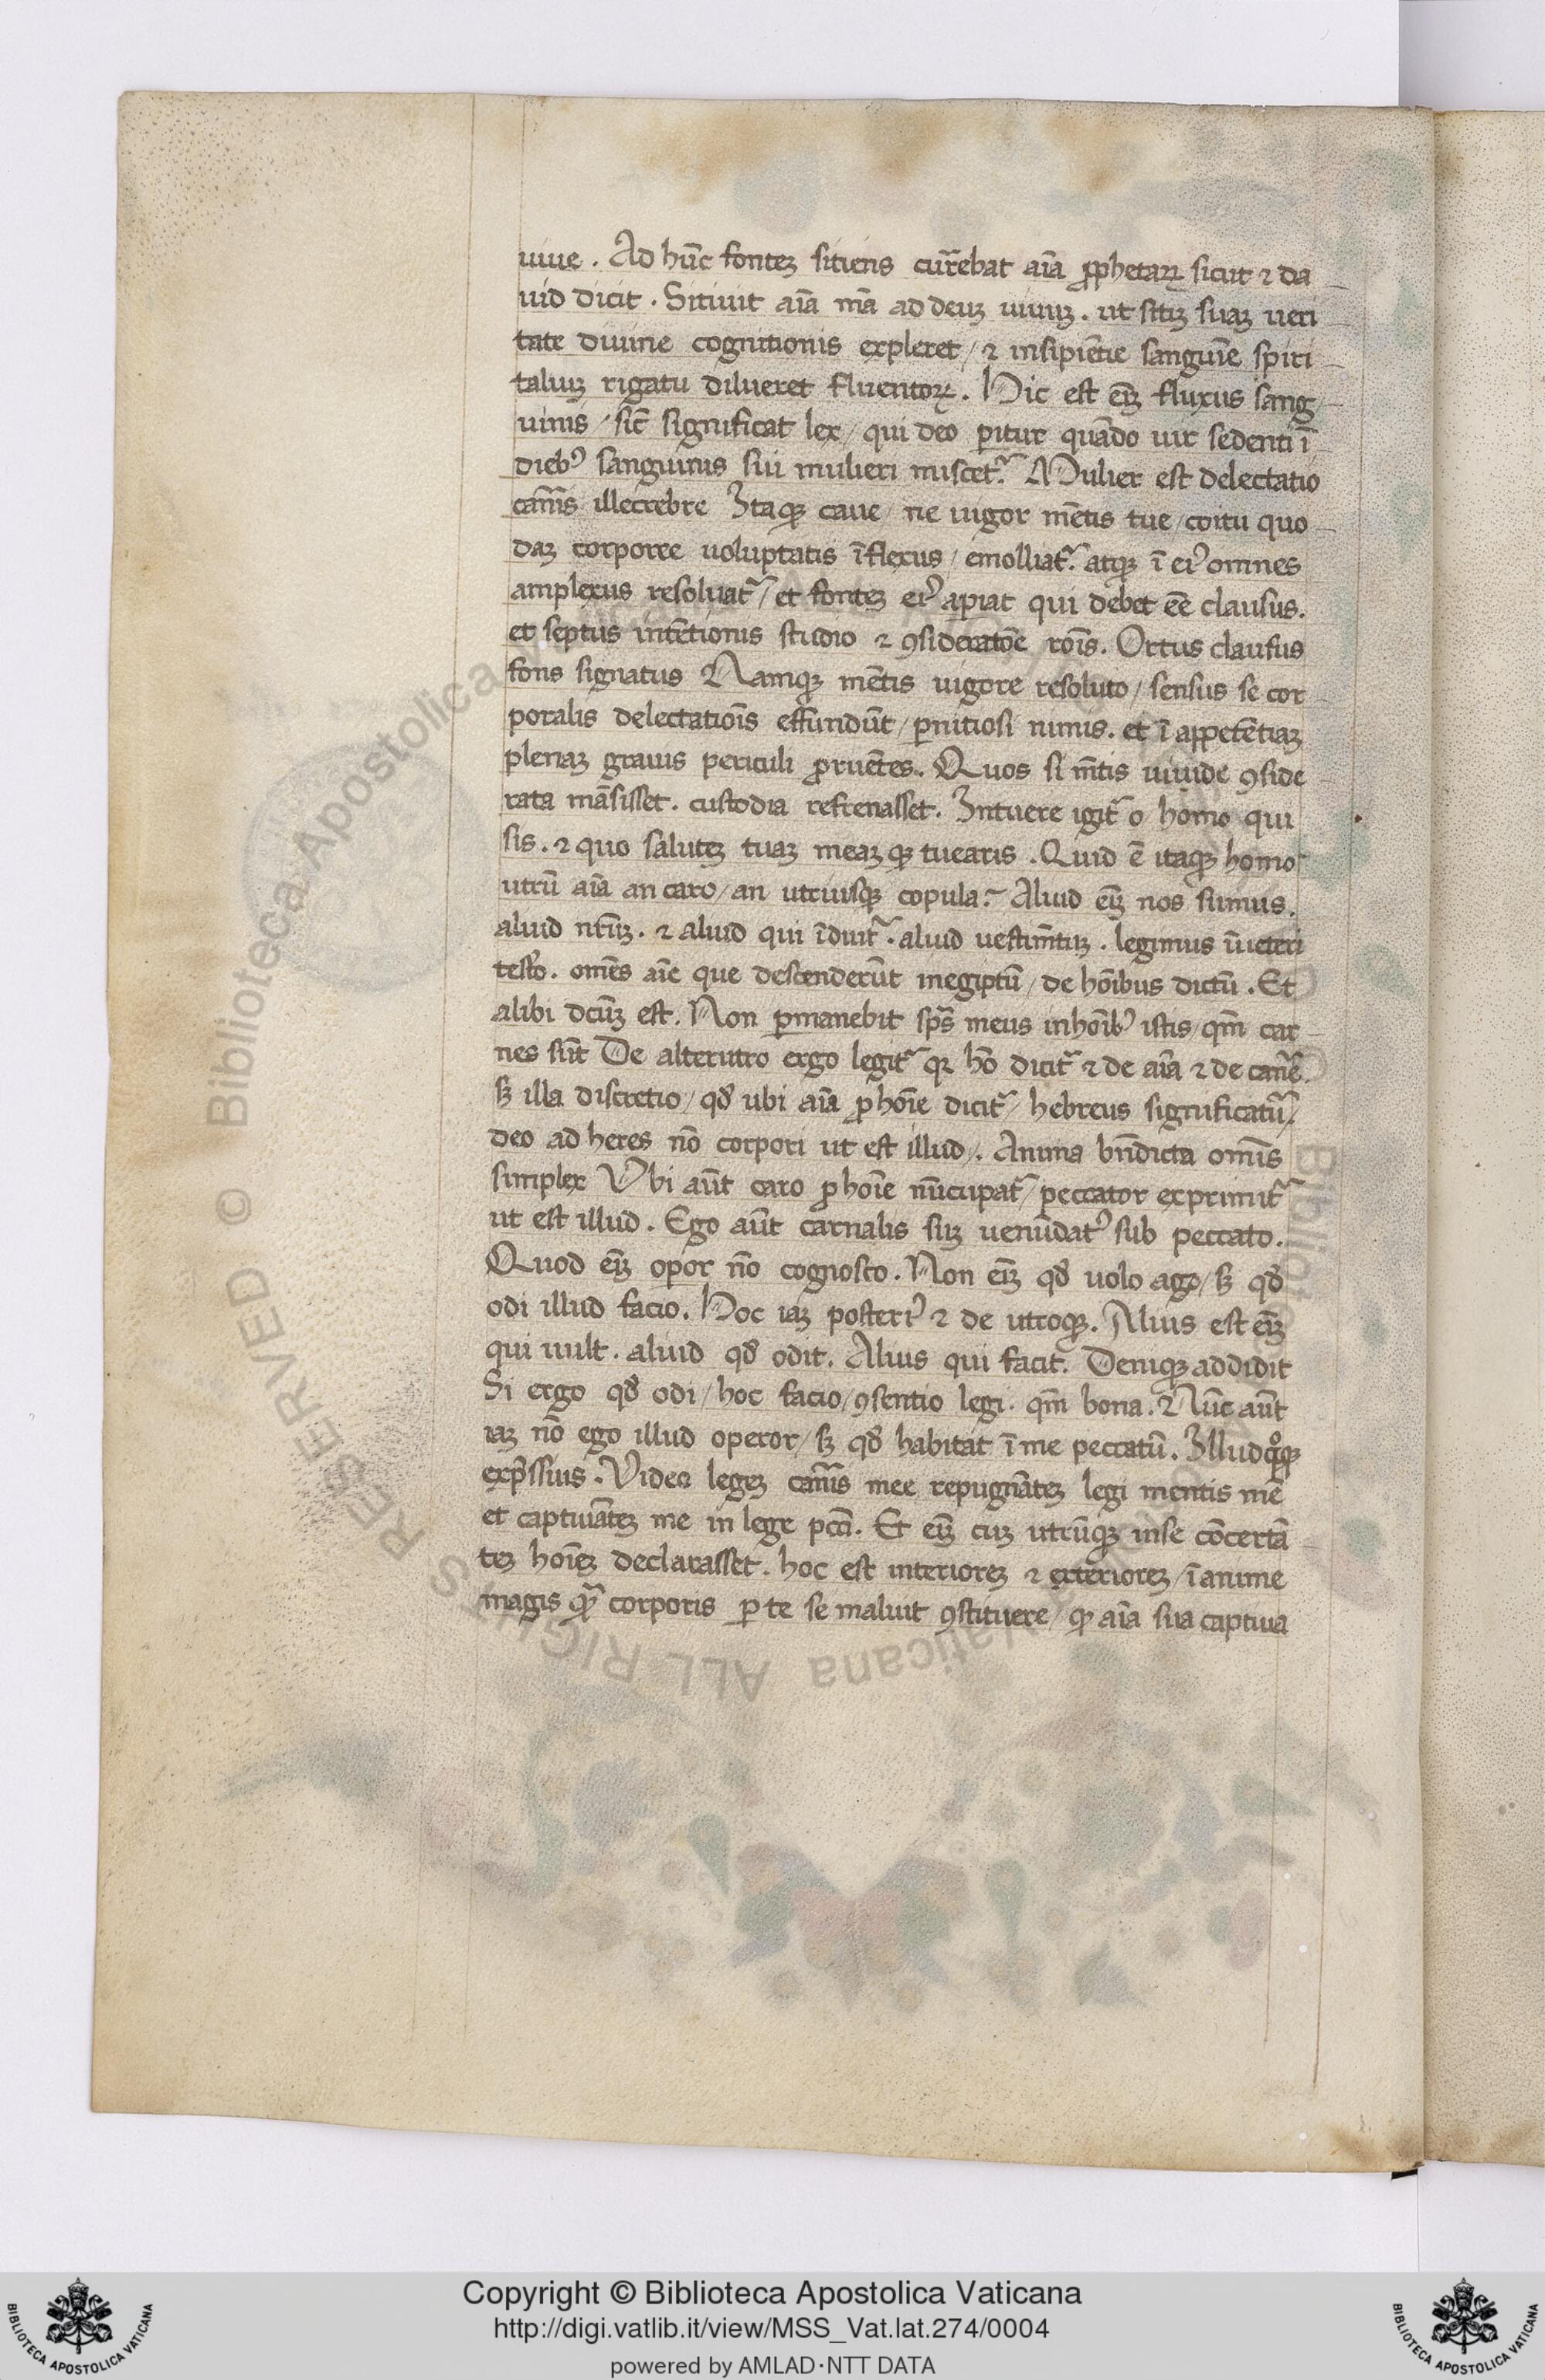 uiue. Ad hūc fonteʒ sitiens cur̄ebat aīa ꝓphetaꝝ sicut ⁊ da
uid dicit. Sitiuit aīa m̄a ad deuʒ uiuuʒ. ut sitiʒ suaʒ ueri
tate diuine cognitionis expleret / ⁊ insipiētie sanguīe spiri
taliuʒ rigatu dilueret fluentoꝝ. Hic est em̄ fluxus sang
uinis / sic̄ significat lex / qui deo ꝑitur quādo uir sedenti ī
diebꝰ sanguinis sui mulieri miscet᷑. Mulier est delectatio
carnīs illecebre Itaqʒ caue / ne uigor mētis tue / coitu quo
daʒ corporee uoluptatis īflexus / emolliat᷑. atqʒ ī eiꝰ omnes
amplexus resoluat᷑ / et fonteʒ eiꝰ apiat qui debet eē clausus.
et septus intētionis studio ⁊ ꝯsideratōe roīs. Ortus clausus
fons signatus Namqʒ mētis uigore resoluto / sensus se cor
poralis delectatioīs effundūt / ꝑnitiosi nimis. et ī appetētiaʒ
plenaʒ grauis periculi ꝓruētes. Quos si m̄tis uiuide ꝯside
rata māsisset. custodia refrenasset. Intuere igit᷑ o homo qui
sis. ⁊ quo saluteʒ tuaʒ meaʒ qʒ tuearis. Quid ē itaqʒ homo
utrū aīa an caro / an utriusqʒ copula. Aliud em̄ nos sumus.
aliud nr̄uʒ. ⁊ aliud qui īduit᷑. aliud uestim̄tuʒ. legimus ī ueteri
testo. om̄es aīe que descenderūt inegiptū / de hoībus dictū. Et
alibi dcūʒ est. Non ꝑmanebit sp̄s meus inhoībꝰ istis / qm̄ car
nes sūt De alterutro ergo legit᷑ qʒ hō dicit᷑ ⁊ de aīa ⁊ de carnē.
sʒ illa discretio / qd̓ ubi aīa ꝓ hoīe dicit᷑ / hebreus significat᷑ /
deo ad heres nō corpori ut est illud /. Anima bn̄dicta omīs
simplex Vbi aūt caro ꝓ hoīe nūcupat᷑ / peccator exprimit᷑
ut est illud. Ego aūt carnalis suʒ uenūdatꝰ sub peccato.
Quod em̄ operor nō cognosco. Non em̄ qd̓ uolo ago / sʒ qd̓
odi illud facio. Hoc iaʒ posteriꝰ ⁊ de utroqʒ. Alius est em̄
qui uult. aliud qd̓ odit. Alius qui facit. Deniqʒ addidit
Si ergo qd̓ odi / hoc facio / ꝯsentio legi. qm̄ bona. Nūc aūt
iaʒ nō ego illud operor / sʒ qd̓ habitat ī me peccatū. Illud qͦqʒ
exp̄ssius. Video legeʒ carnīs mee repugnāteʒ legi mentis mē
et captiuāteʒ me in lege pcc̄i. Et em̄ cuʒ utrūqʒ inse cōcertā
teʒ hoīeʒ declarasset. hoc est interioreʒ ⁊ exterioreʒ / ī anime
magis qᷓ corporis ꝑte se maluit ꝯstituere / qʒ aīa sua captiua
© Biblioteca Apostolica Vaticana ALL RIGHTS RESERVED
BIBLIOTECA APOSTOLICA VATICANA
Copyright © Biblioteca Apostolica Vaticana
http://digi.vatlib.it/view/MSS_Vat.lat.274/0004
powered by AMLAD·NTT DATA
BIBLIOTECA APOSTOLICA VATICANA